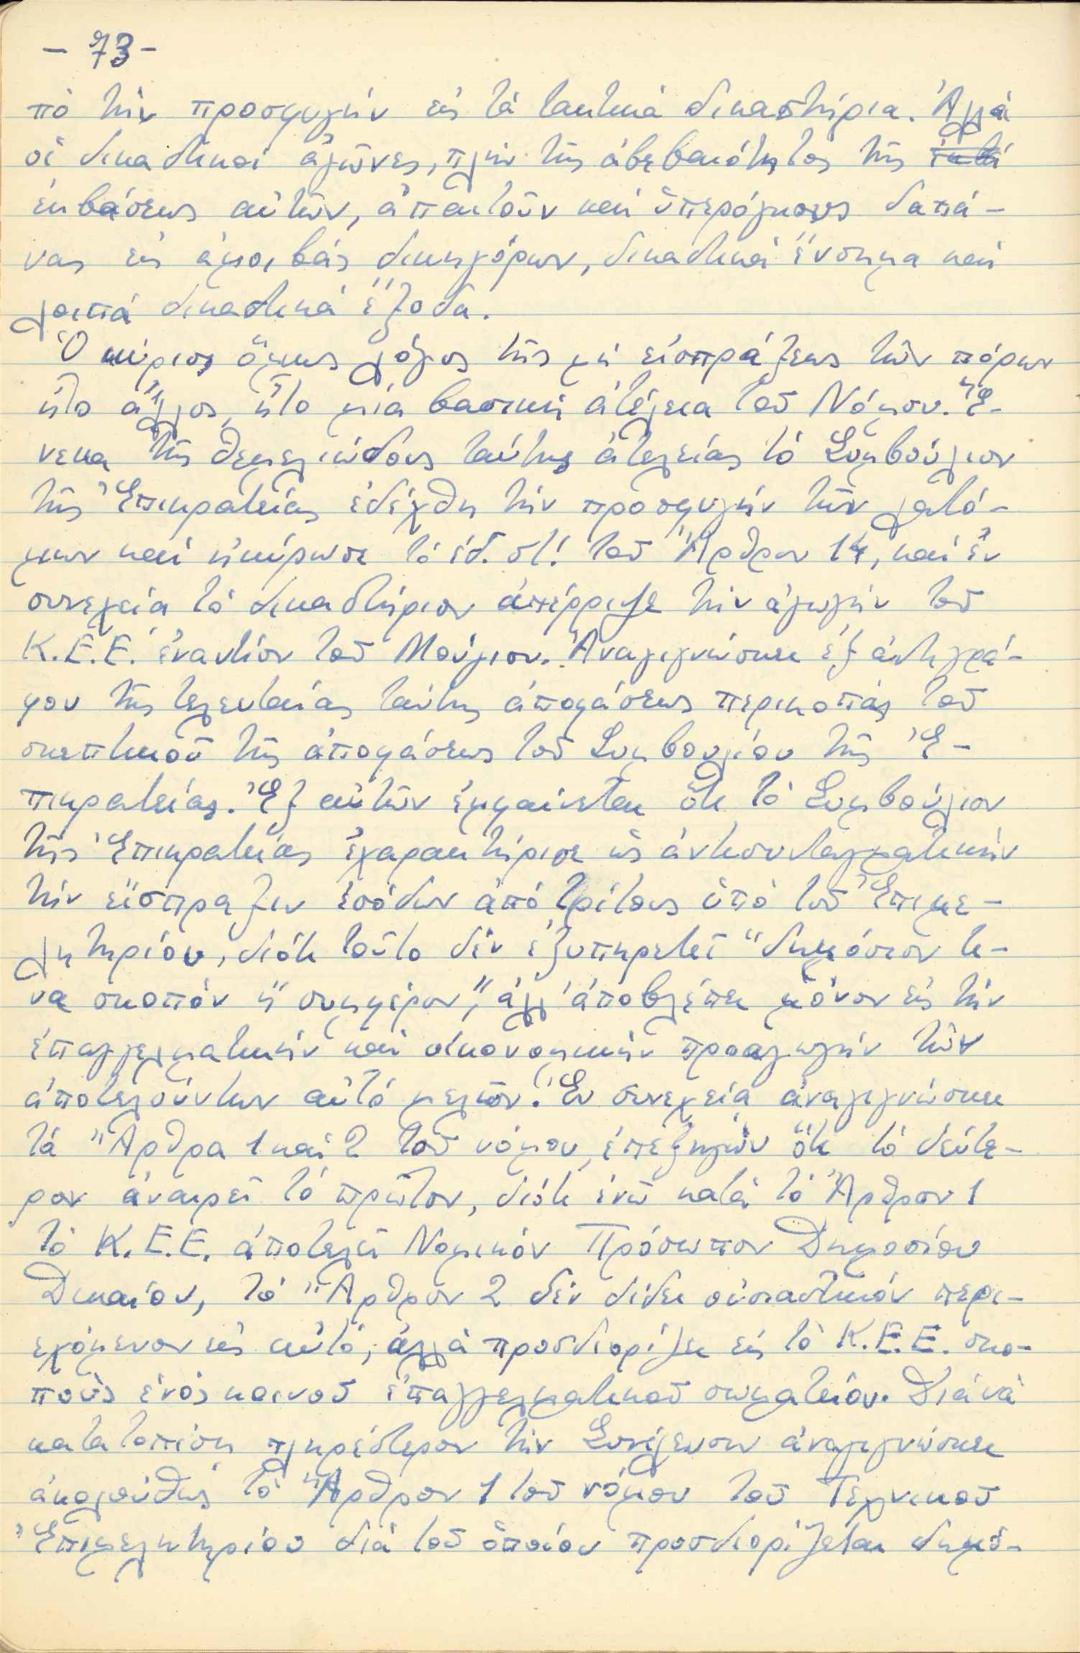 - 73 -
πό τήν προσφυγήν εἰς τά τακτικά δικαστήρια. Ἀλλά
οἱ δικαστικοί ἀγῶνες, πλήν τῆς ἀβεβαιότητος τῆς
ἐκβάσεως αὐτῶν, ἀπαιτοῦν καί ὑπερόγκους δαπά-
νας εἰς ἀμοιβάς δικηγόρων, δικαστικά ἔνσημα καί
λοιπά δικαστικά ἔξοδα.
Ὁ κύριος ὅμως λόγος τῆς μή εἰσπράξεως τῶν πόρων
ἦτο ἄλλος, ἦτο μία βασική ἀτέλεια τοῦ Νόμου. Ἕ-
νεκα τῆς θεμελιώδους ταύτης ἀτελείας τό Συμβούλιον
τῆς Ἐπικρατείας ἐδέχθη τήν προσφυγήν τῶν λατό-
μων καί ἠκύρωσε τό ἐδ. στ! τοῦ Ἄρθρου 14, καί ἐν
συνεχείᾳ τό δικαστήριον ἀπέρριψε τήν ἀγωγήν τοῦ
Κ.Ε.Ε. ἐναντίον τοῦ Μούλιου. Ἀναγιγνώσκει ἐξ ἀντιγρά-
φου τῆς τελευταίας ταύτης ἀποφάσεως περικοπάς τοῦ
σκεπτικοῦ τῆς ἀποφάσεως τοῦ Συμβουλίου τῆς Ἐ-
πικρατείας. Ἐξ αὐτῶν ἐμφαίνεται ὅτι τό Συμβούλιον
τῆς Ἐπικρατείας ἐχαρακτήρισε ὡς ἀντισυνταγματικήν
τήν εἴσπραξιν ἐσόδων ἀπό τρίτους ὑπό τοῦ Ἐπιμε-
λητηρίου, διότι τοῦτο δέν ἐξυπηρετεῖ "δημόσιον τι-
να σκοπόν ἤ συμφέρον", ἀλλ' ἀποβλέπει μόνον εἰς τήν
ἐπαγγελματικήν καί οἰκονομικήν προαγωγήν τῶν
ἀποτελούντων αὐτό μελῶν. Ἐν συνεχείᾳ ἀναγιγνώσκει
τά Ἄρθρα 1 καί 2 τοῦ νόμου, ἐπεξηγῶν ὅτι τό δεύτε-
ρον ἀναιρεῖ τό πρῶτον, διότι ἐνῶ κατά τό Ἄρθρον 1
τό Κ.Ε.Ε. ἀποτελεῖ Νομικόν Πρόσωπον Δημοσίου
Δικαίου, τό Ἄρθρον 2 δέν δίδει οὐσιαστικόν περι-
εχόμενον εἰς αὐτό, ἀλλά προσδιορίζει εἰς τό Κ.Ε.Ε. σκο-
πούς ἑνός κοινοῦ ἐπαγγελματικοῦ σωματείου. Διά νά
κατατοπίσῃ πληρέστερον τήν Συνέλευσιν ἀναγιγνώσκει
ἀκολούθως τό Ἄρθρον 1 τοῦ νόμου τοῦ Τεχνικοῦ
Ἐπιμελητηρίου διά τοῦ ὁποίου προσδιορίζεται δημό-